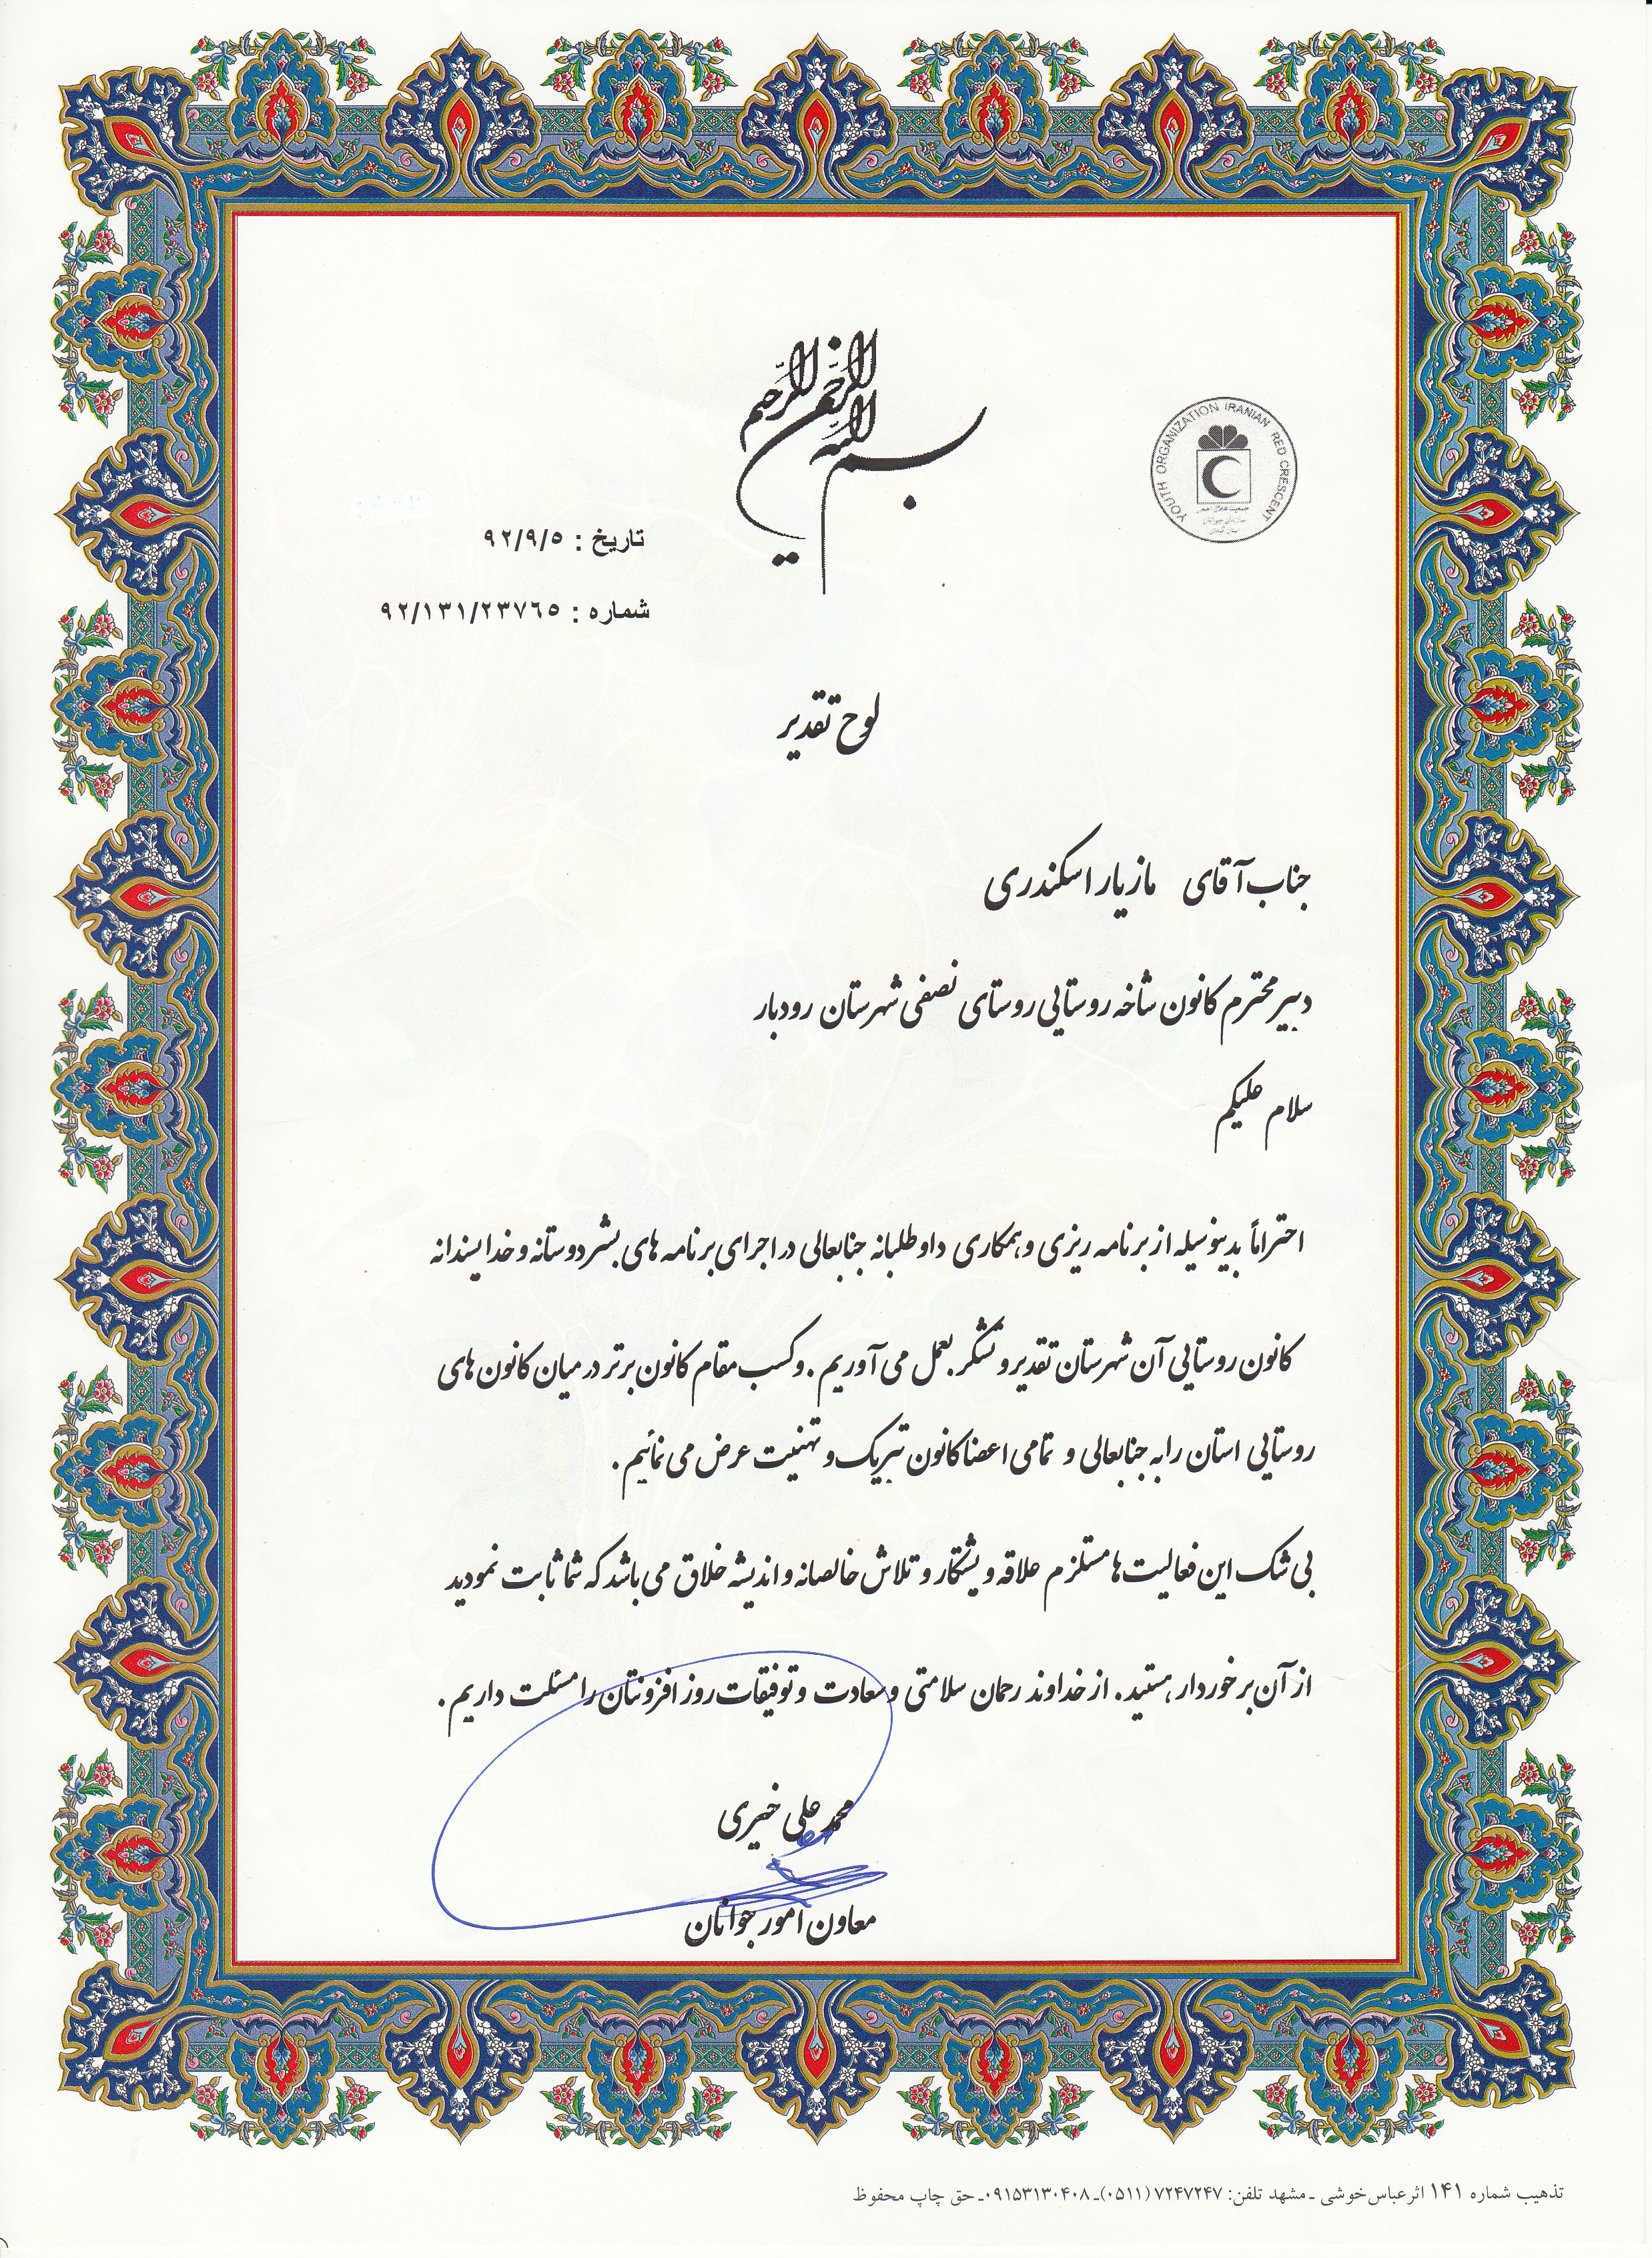 بسم الله الرحمن الرحیم
YOUTH ORGANIZATION IRANIAN RED CRESCENT
تاریخ : ۹۲/۹/۵
شماره : ۹۲/۱۳۱/۲۳۷۶۵
لوح تقدیر
جناب آقای مازیار اسکندری
دبیر محترم کانون شاخه روستایی روستای نصفی شهرستان رودبار
سلام علیکم
احتراماً بدینوسیله از برنامه ریزی و همکاری داوطلبانه جنابعالی در اجرای برنامه های بشردوستانه و خداپسندانه
کانون روستایی آن شهرستان تقدیر و تشکر بعمل می آوریم . و کسب مقام کانون برتر در میان کانون های
روستایی استان را به جنابعالی و تمامی اعضا کانون تبریک و تهنیت عرض می نمائیم .
بی شک این فعالیت ها مستلزم علاقه و پشتکار و تلاش خالصانه و اندیشه خلاق می باشد که شما ثابت نمودید
از آن برخوردار هستید . از خداوند رحمان سلامتی و سعادت و توفیقات روز افزونتان را مسئلت داریم .
محمد علی خیری
معاون امور جوانان
تذهیب شماره ۱۴۱ اثر عباس خوشی ـ مشهد تلفن: ۷۲۴۷۲۴۷ (۰۵۱۱)ـ ۰۹۱۵۳۱۳۰۴۰۸ـ حق چاپ محفوظ